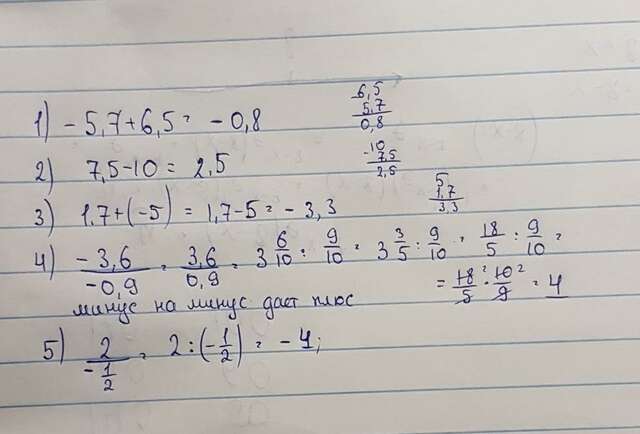 1) -5,7+6,5= -0,8
6,5
5,7
0,8
2) 7,5-10= 2,5
-10
7,5
2,5
3) 1,7+(-5)= 1,7-5= -3,3
5
1,7
3,3
4) -3,6/-0,9 = 3,6/0,9 = 3 6/10 : 9/10 = 3 3/5 : 9/10 = 18/5 : 9/10 =
= 18²/5 · 10²/9 = 4
минус на минус дает плюс
5) 2/-1/2 = 2:(-1/2)= -4;